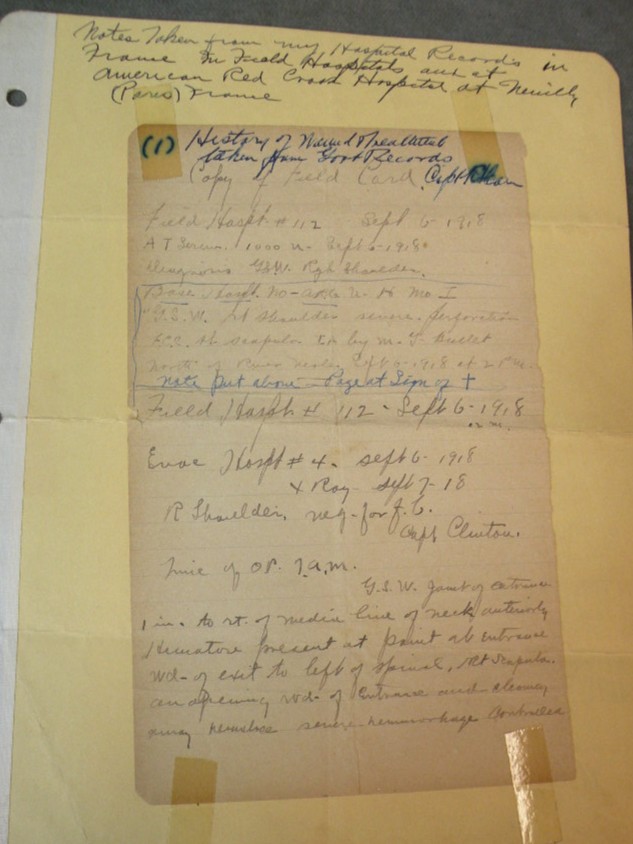 Notes Taken from my Hospital Records in
France In Field Hospitals and at
American Red Cross Hospital at Neuilly
(Paris) France
(1) History of Wound & Treatment
taken from Govt Records
Copy of Field Card. Capt
Field Hospt. # 112 Sept 6-1918
A T Serum. 1000 u- Sept 6-1918
Diagnosis G.S.W. Rgh Shoulder.
Base Hospt. No- U. H. Mo. I
G.S.W. rt shoulder severe. perforation
scapula by M. G. Bullet
north of River Sept 1918 at 2 P.M.
Note Put above - Page at Sign of +
Field Hospt # 112 - Sept 6-1918
Evac Hospt # 4. Sept 6- 1918
X Ray - Sept 7-18
R Shoulder. neg- for f. b.
Capt Clinton.
Time of OP. 7 a.m.
G.S.W. of entrance
1 in. to rt. of median line of neck anteriorly
present at point of entrance
wd- of exit to left of spine, scapula.
on opening wd- of entrance and cleaning
away severe hemmorhage controlled